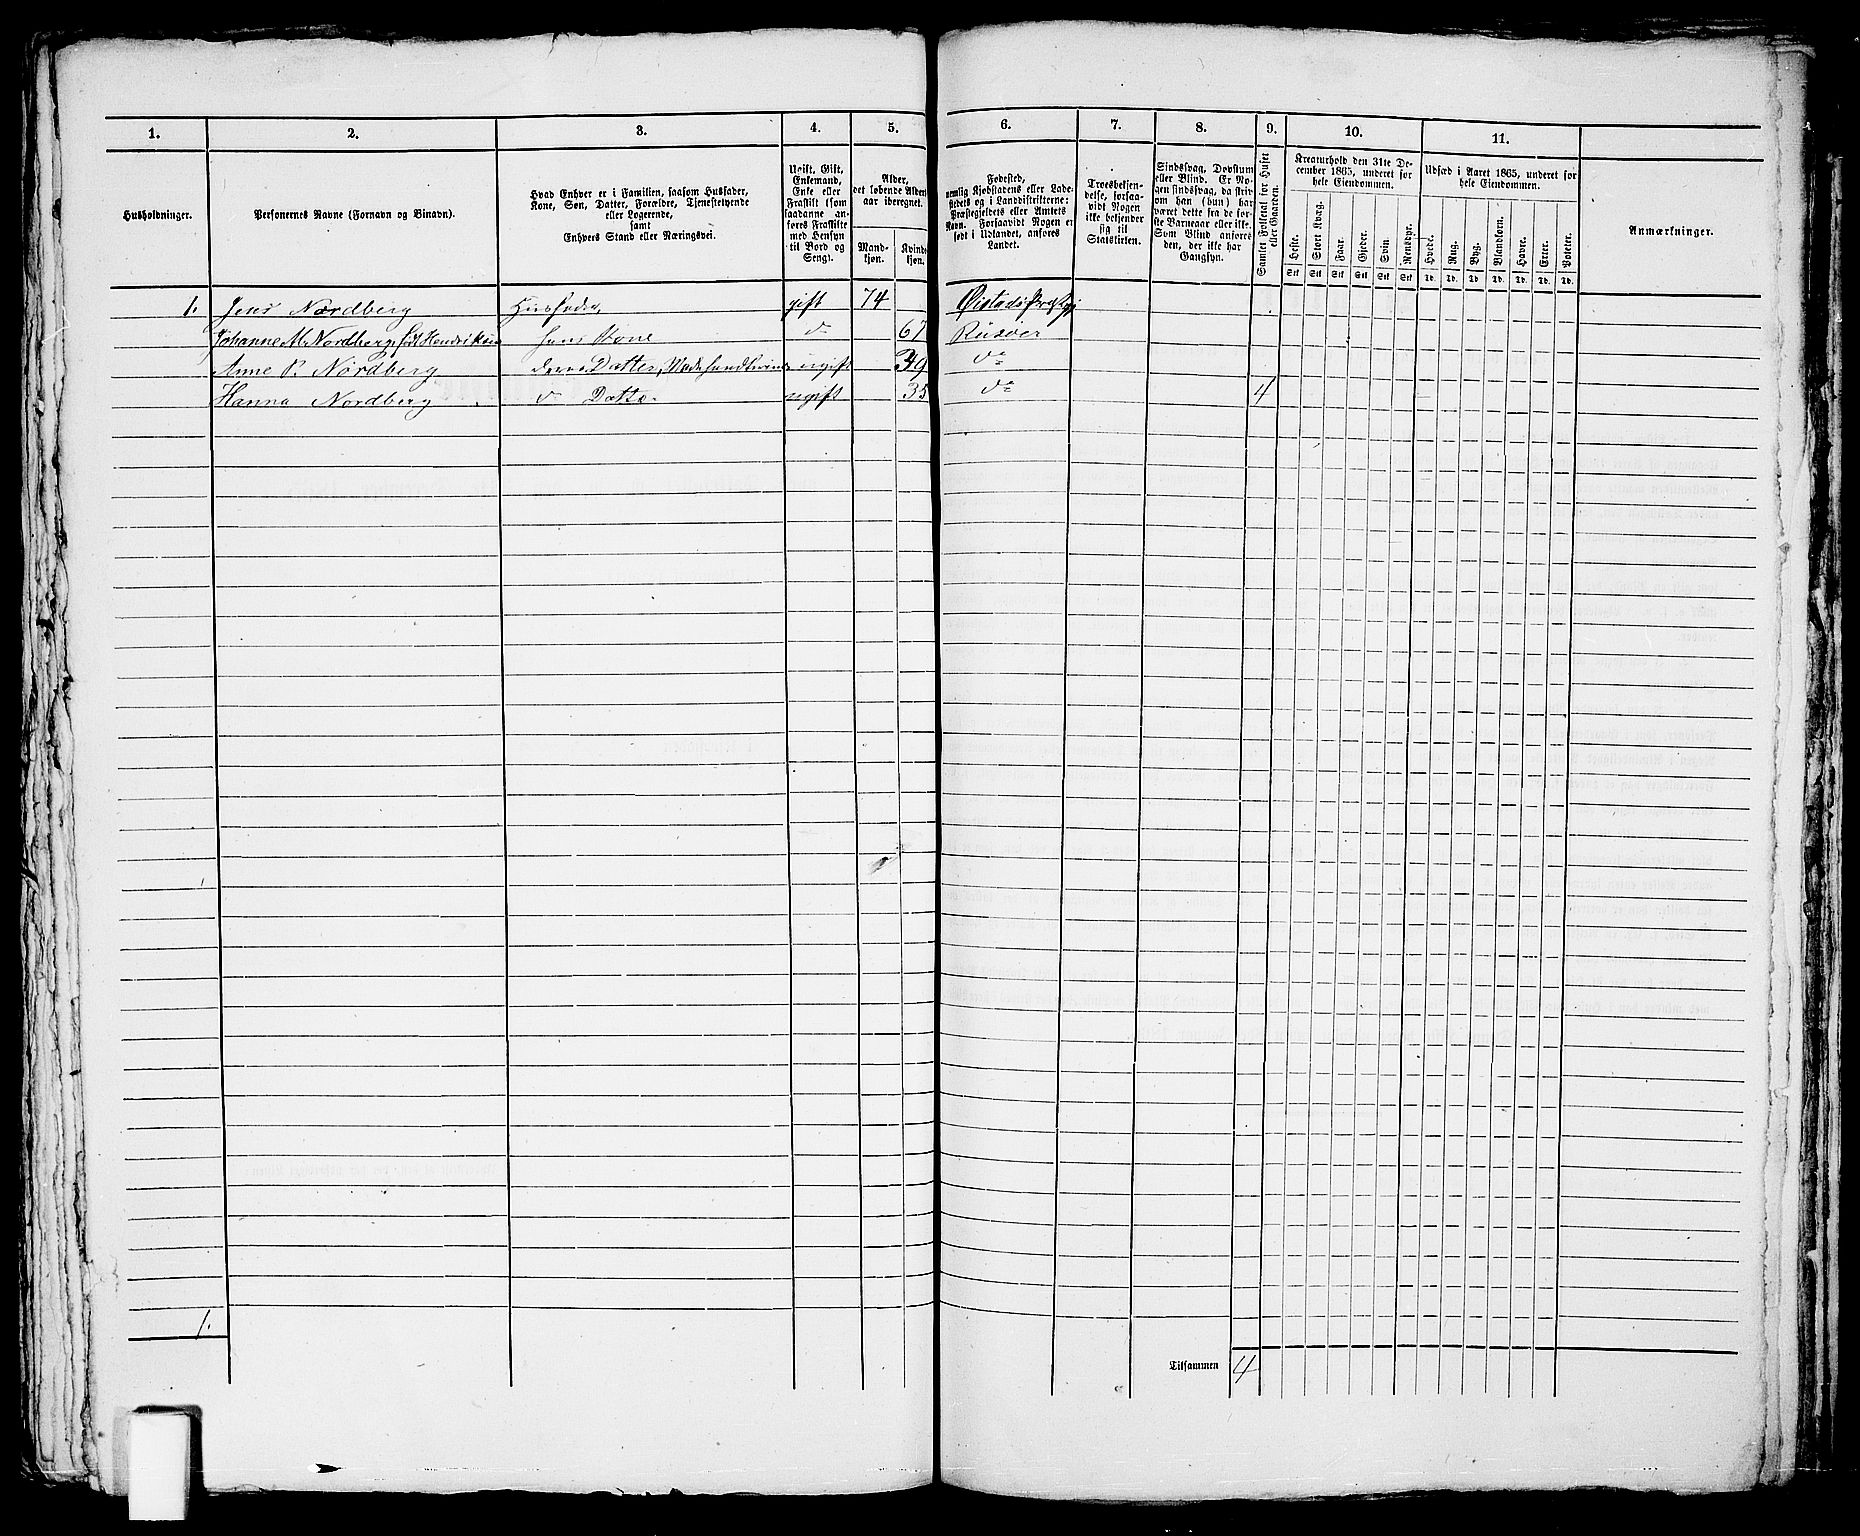 1.
2.
3.
4.
5.
6.
7.
8.
9.
10.
11.
Husholdninger.
Personernes Navne (Fornavn og Binavn).
Hvad Enhver er i Familien, saasom Husfader,
Kone, Søn, Datter, Forældre, Tjenestetyende
eller Logerende,
samt
Enhvers Stand eller Næringsvei.
Ugift, Gift,
Enkemand,
Enke eller
Fraskilt (som
saadanne an-
føres Fraskilte
med Hensyn
til Bord og
Seng).
Alder,
det løbende Alders-
aar iberegnet.
Mand-
kjøn.
Kvinde-
kjøn.
Fødested,
nemlig Kjøbstadens eller Lade-
stedets og i Landdistrikterne:
Præstegjeldets eller Amtets
Navn. Forsaavidt Nogen er
født i Udlandet, anføres
Landet.
Troesbekjen-
delse, forsaa-
vidt Nogen
ikke bekjender
sig til
Statskirken.
Sindssvag, Døvstum
eller Blind. Er No-
gen sindssvag, da skriv
om han (hun) har
været dette fra de før-
ste Barneaar eller ikke.
Som Blind anføres
den, der ikke har
Gangsyn.
Samlet Folketal for Huset
eller Gaarden.
Kreaturhold den 31te De-
cember 1865, underet for
hele Eiendommen.
Heste.
Stort Kvæg.
Faar.
Gjeder.
Svin.
Rensdyr.
Stk Stk Stk Stk Stk Stk
Udsæd i Aaret 1865, underet for
hele Eiendommen.
Hvede.
Rug.
Byg.
Blandkorn.
Havre.
Erter.
Poteter.
Td. Td. Td. Td. Td. Td. Td.
Anmærkninger.
1. Jens Nordberg Husfader gift 74 Øiestads Præstgj
Johanne M. Nordberg født Hendriksen hans Kone do 67 Risøer
Anne P. Nordberg deres Datter, ugift 39 do
Hanna Nordberg do Datter ugift 35 do 4
1.
Tilsammen 4